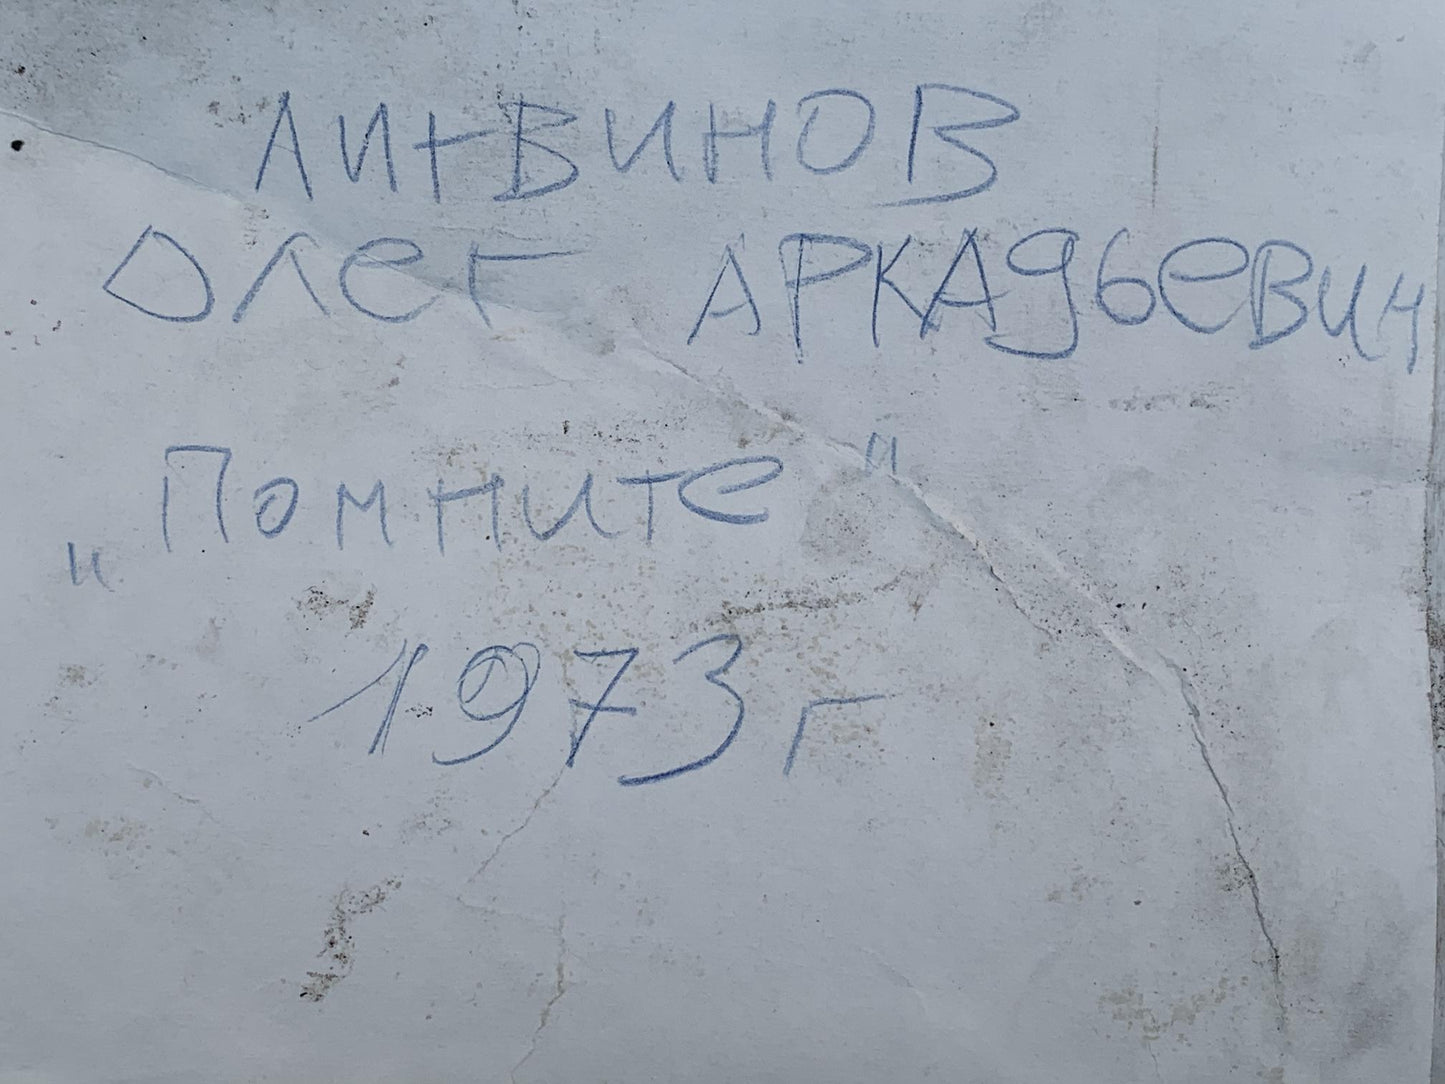 ЛИТВИНОВ
Олег АРКАдЬевич
„Помните"
1973г